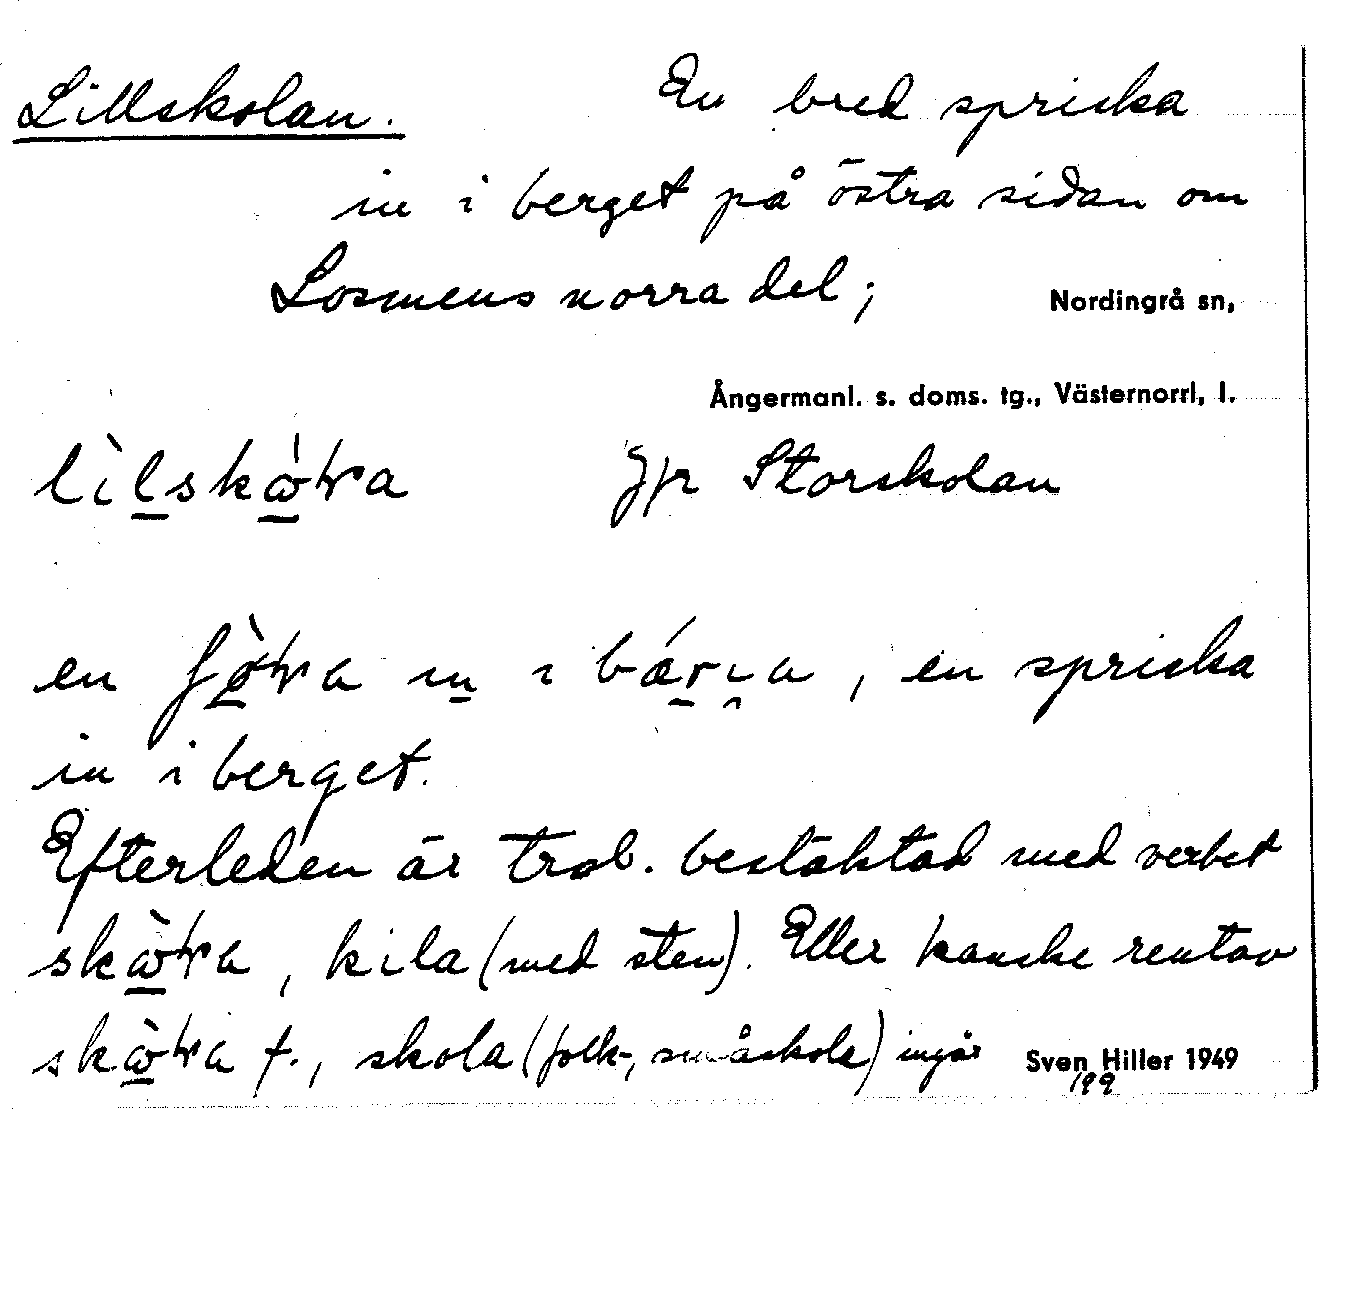 Lillskolan. En bred spricka
in i berget på östra sidan om
Losmens norra del;
Nordingrå sn,
Ångermanl. s. doms. tg., Västernorrl, l.
Jfr Storskolan
en in i , en spricka
in i berget.
Efterleden är trol. besläktad med verbet
, kila (med sten). Eller kanske rentav
f., skola (folk-, småskola) ingår
Sven Hiller 1949
199